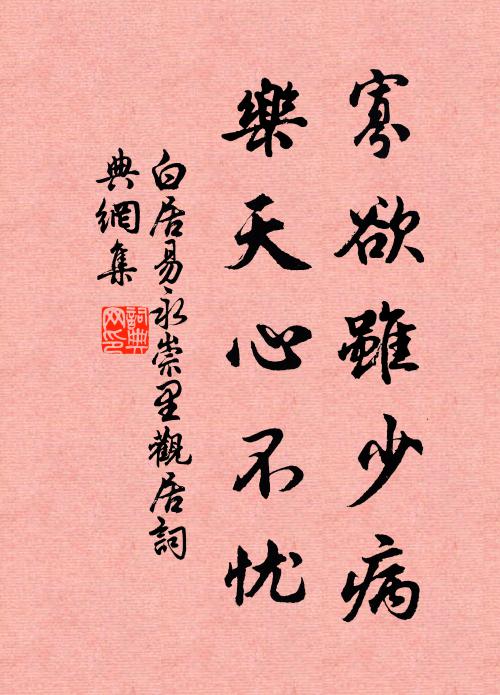 寡欲雖少病
樂天心不忧
白居易永崇里觀居詞
典網集
詞典
网印